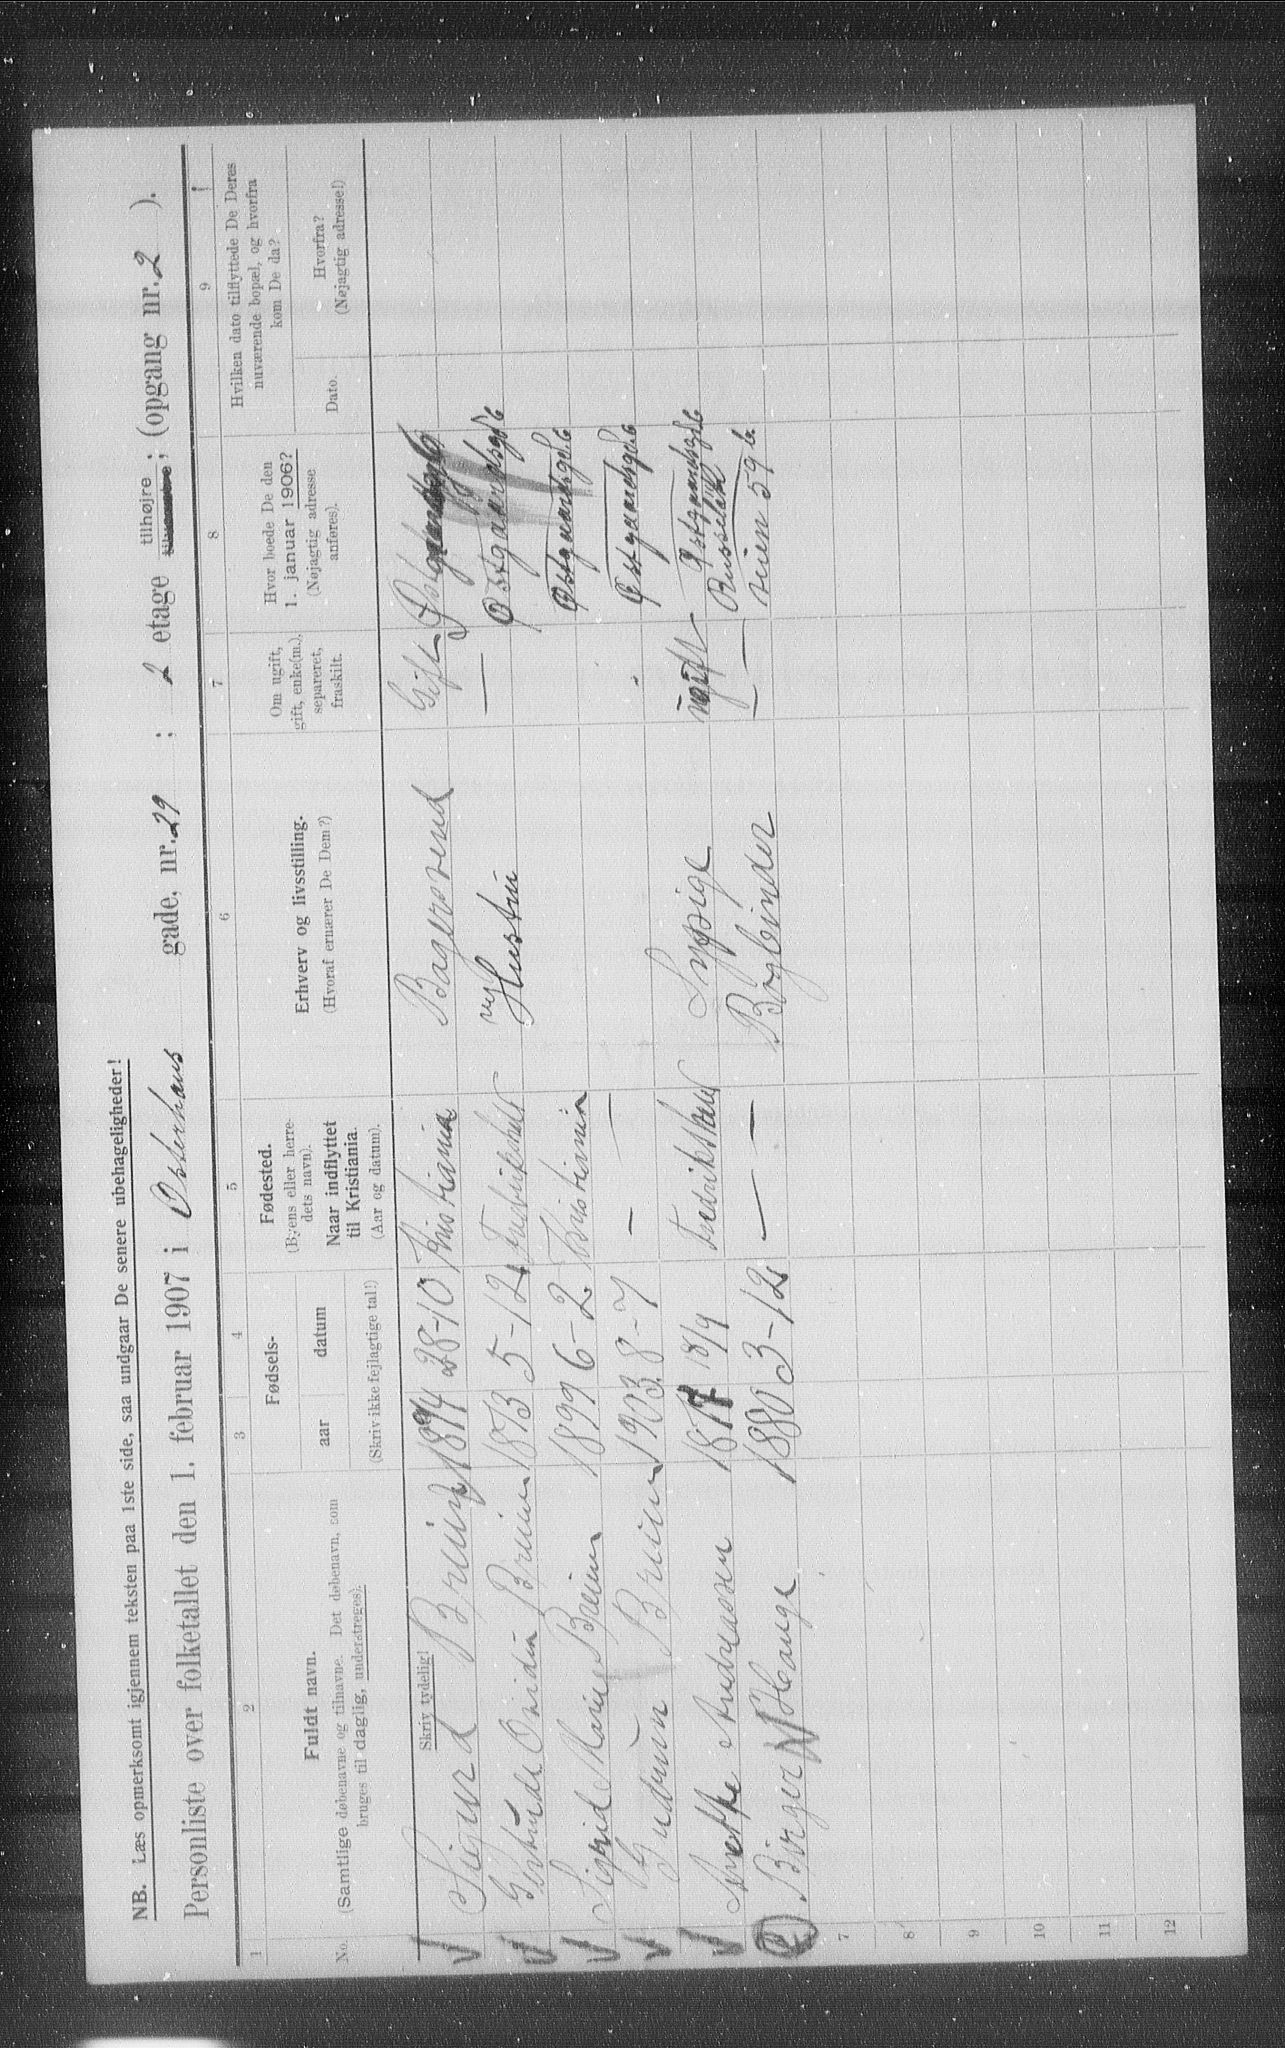 NB. Læs opmerksomt igjennem teksten paa 1ste side, saa undgaar De senere ubehageligheder!
Personliste over folketallet den 1. februar 1907 i Osterhaus gade, nr. 29 ; 2 etage tilhøjre ; (opgang nr. 2 ).
1 2 3 4 5 6 7 8 9
No. Fuldt navn.
(Samtlige døbenavne og tilnavne. Det døbenavn, som
bruges til daglig, understreges).
Fødsels-
aar datum
(Skriv ikke fejlagtige tal!)
Fødested.
(Byens eller herre-
dets navn).
Naar indflyttet
til Kristiania.
(Aar og datum).
Erhverv og livsstilling.
(Hvoraf ernærer De Dem?)
Om ugift,
gift, enke(m.),
separeret,
fraskilt.
Hvor boede De den
1. januar 1906?
(Nøjagtig adresse
anføres).
Hvilken dato tilflyttede De Deres
nuværende bopæl, og hvorfra
kom De da?
Dato. Hvorfra?
(Nøjagtig adresse!)
Skriv tydelig!
Sigurd Bruun 1874 28-10 Kristiania Bagersvend Gift
Gertrude Bruun 1873 5-12 Fredrikshald Hustru — Østgaardsgd 6
Sigrid Marie Bruun 1899 6-2 Kristiania Østgaardsgd 6
Gudrun Bruun 1903 8-7 — — Østgaardsgd 6
Anethe Andreassen 1877 18/9 Fredrikshald Sypige ugift Østgaardsgd 6
Birger Hauge 1880 3-12 — — Bogbinder — 59 b.
7
8
9
10
11
12